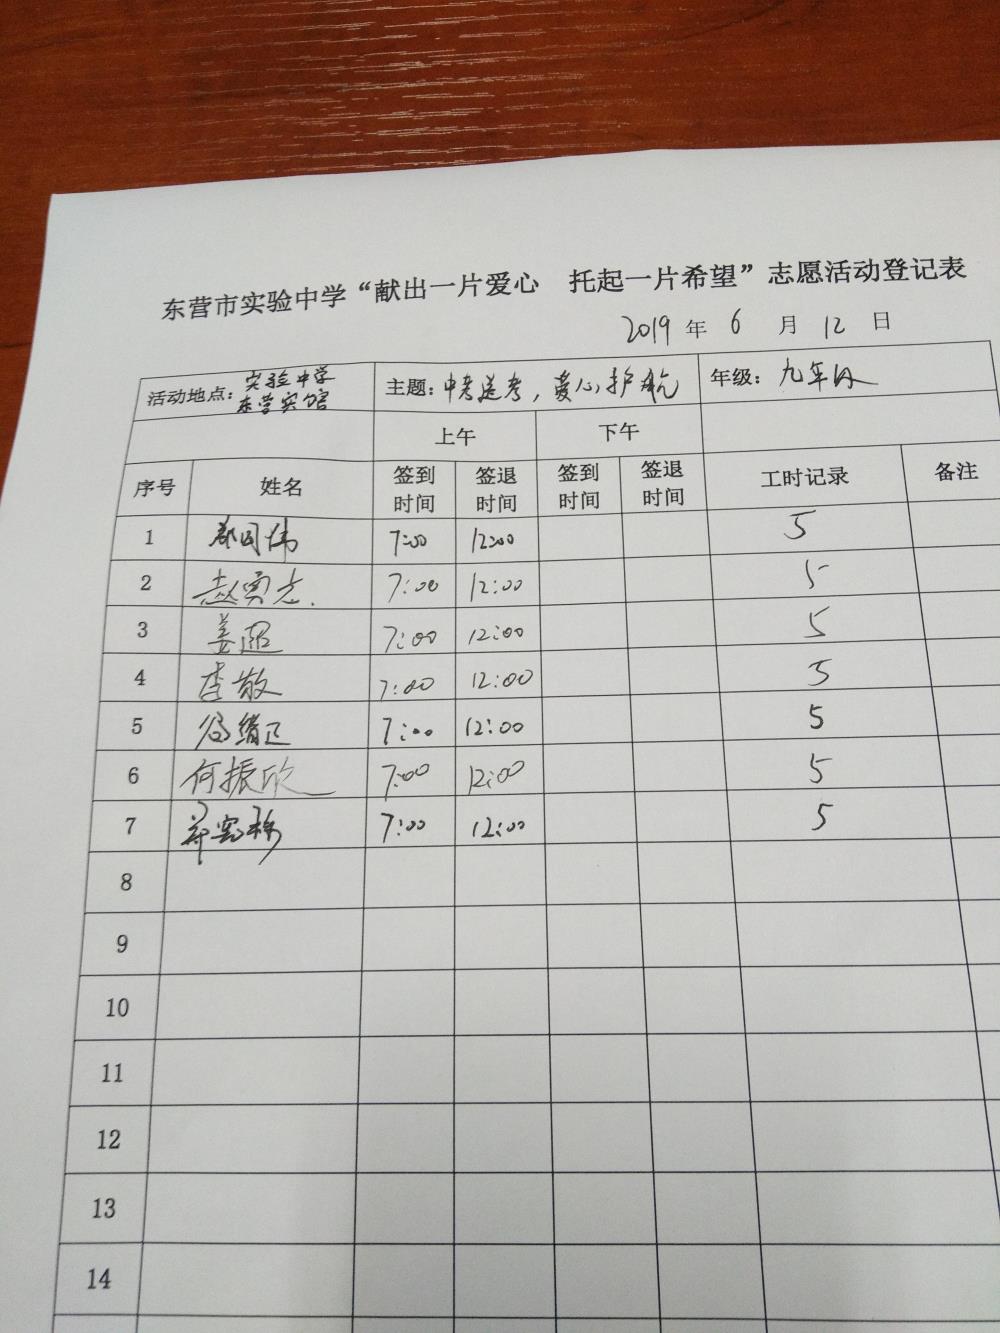 东营市实验中学“献出一片爱心 托起一片希望”志愿活动登记表
2019 年 6 月 12 日
活动地点：实验中学 东营宾馆 主题：中考送考，爱心护航 年级：九年级
上午 下午
序号 姓名 签到时间 签退时间 签到时间 签退时间 工时记录 备注
1 7:00 12:00 5
2 赵 志 7:00 12:00 5
3 姜 7:00 12:00 5
4 李敬 7:00 12:00 5
5 7:00 12:00 5
6 何振欣 7:00 12:00 5
7 7:00 12:00 5
8
9
10
11
12
13
14